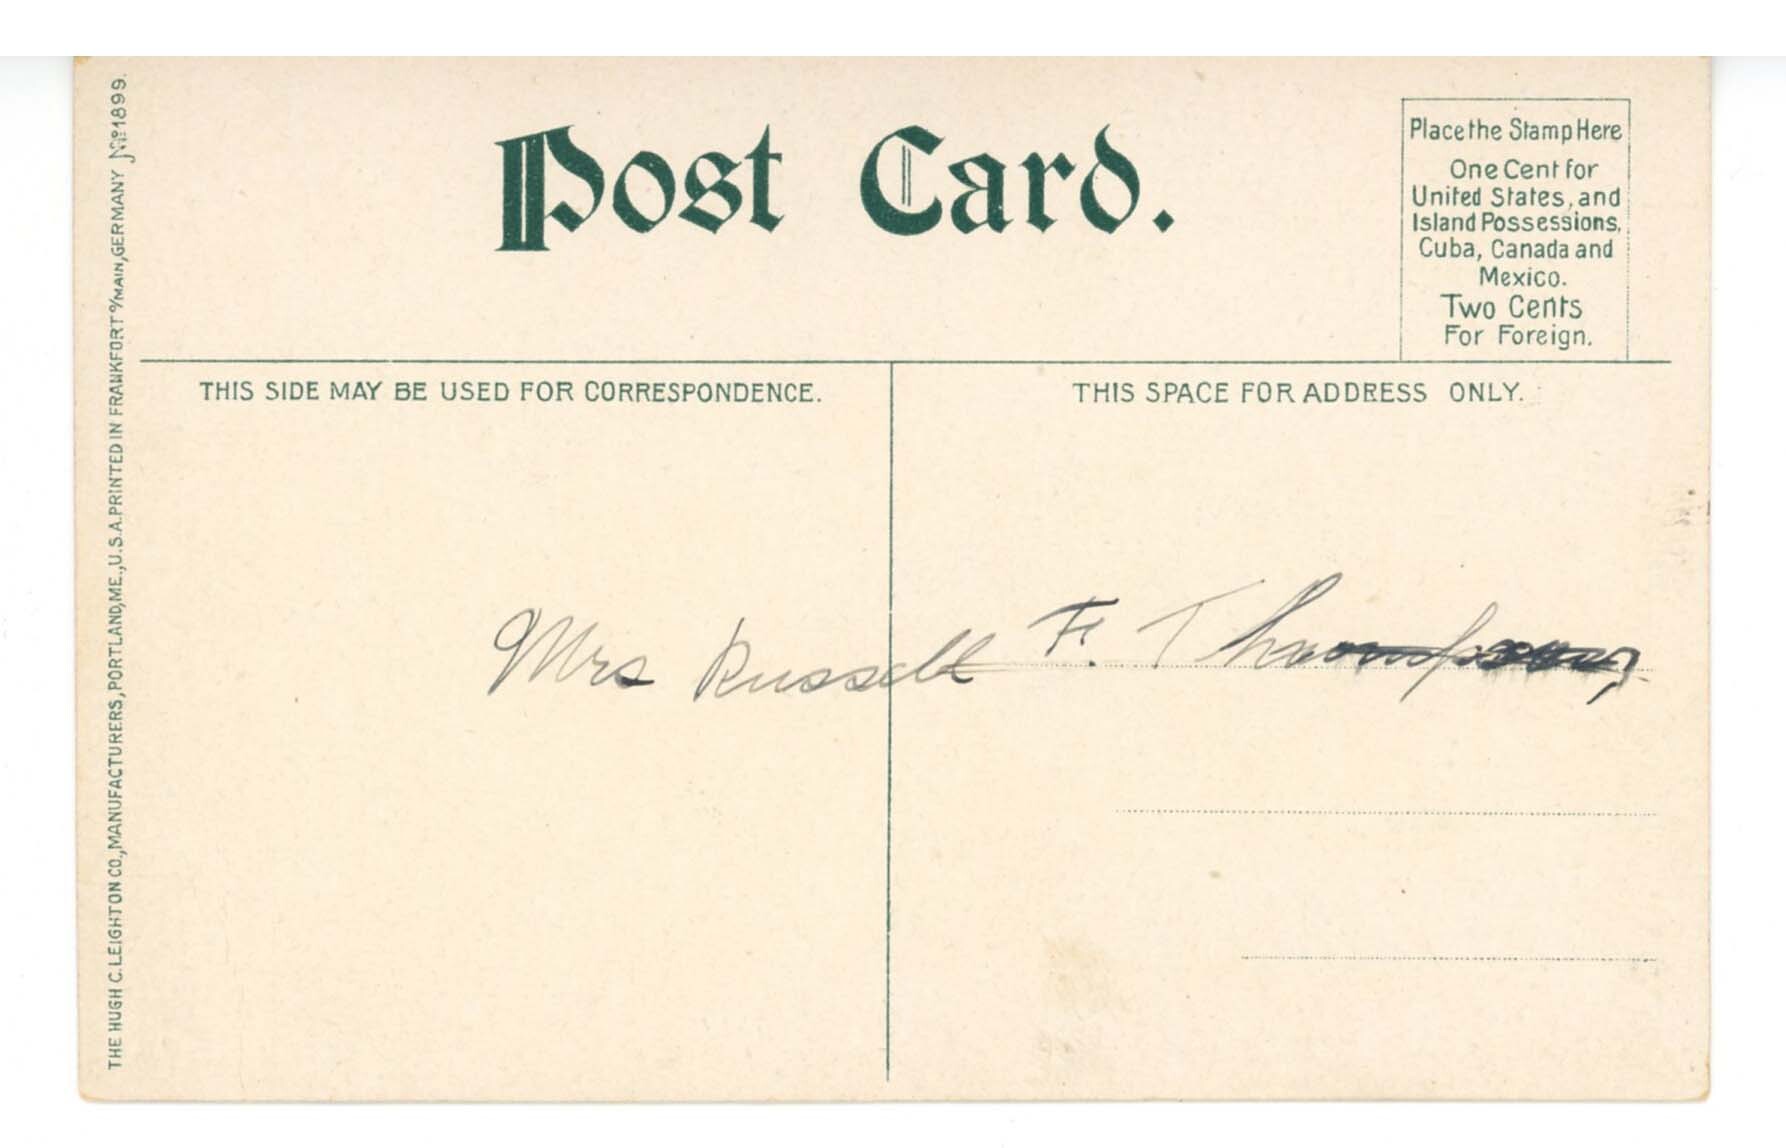 Post Card.
Place the Stamp Here
One Cent for
United States, and
Island Possessions,
Cuba, Canada and
Mexico.
Two Cents
For Foreign.
THIS SIDE MAY BE USED FOR CORRESPONDENCE.
THIS SPACE FOR ADDRESS ONLY.
Mrs Russell F. Thompson,
THE HUGH C. LEIGHTON CO., MANUFACTURERS, PORTLAND, ME., U.S.A. PRINTED IN FRANKFORT o/MAIN, GERMANY No 1899.